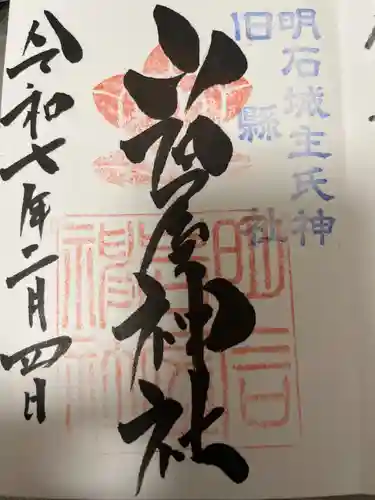 明石城主氏神
旧縣社
岩屋神社
令和七年二月四日
明石
岩屋
神社